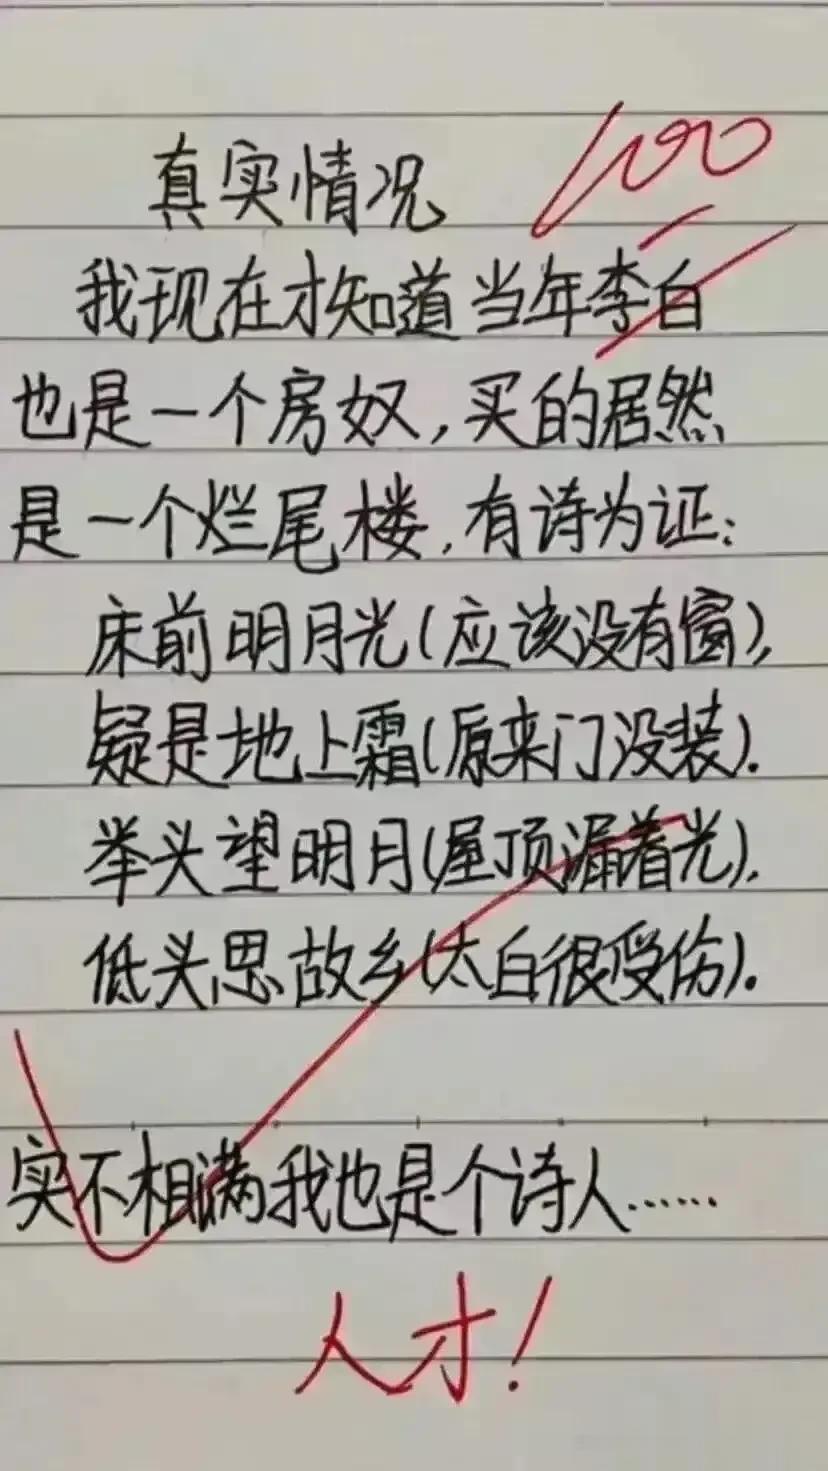 100
真实情况
我现在才知道当年李白
也是一个房奴,买的居然
是一个烂尾楼,有诗为证:
床前明月光(应该没有窗),
疑是地上霜(原来门没装).
举头望明月(屋顶漏着光),
低头思故乡(太白很受伤).
实不相满我也是个诗人……
人才!